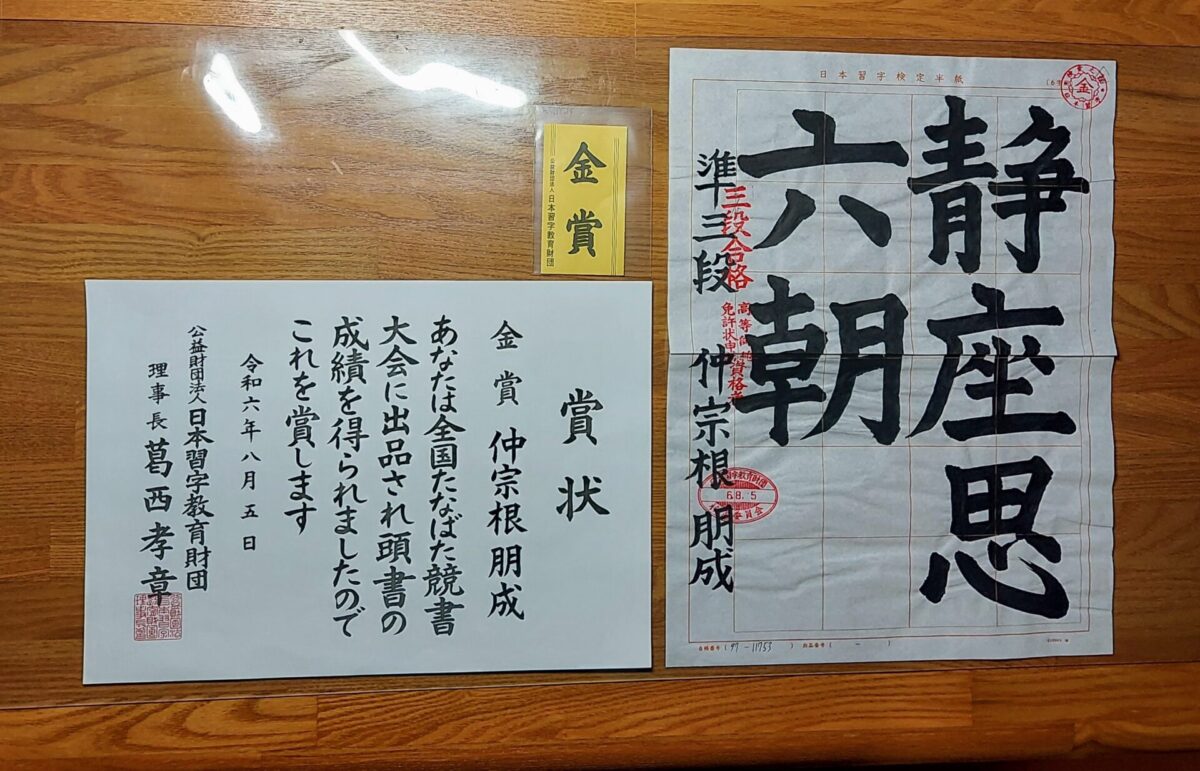 日本習字検定半紙
金
静座思
六朝
三段合格
高等
免許状申
資格
準三段 仲宗根朋成
68.5
97-11753
金賞
公益財団法人日本習字教育財団
賞状
金賞 仲宗根朋成
あなたは全国たなばた競書
大会に出品され頭書の
成績を得られましたので
これを賞します
令和六年八月五日
公益財団法人日本習字教育財団
理事長 葛西孝章